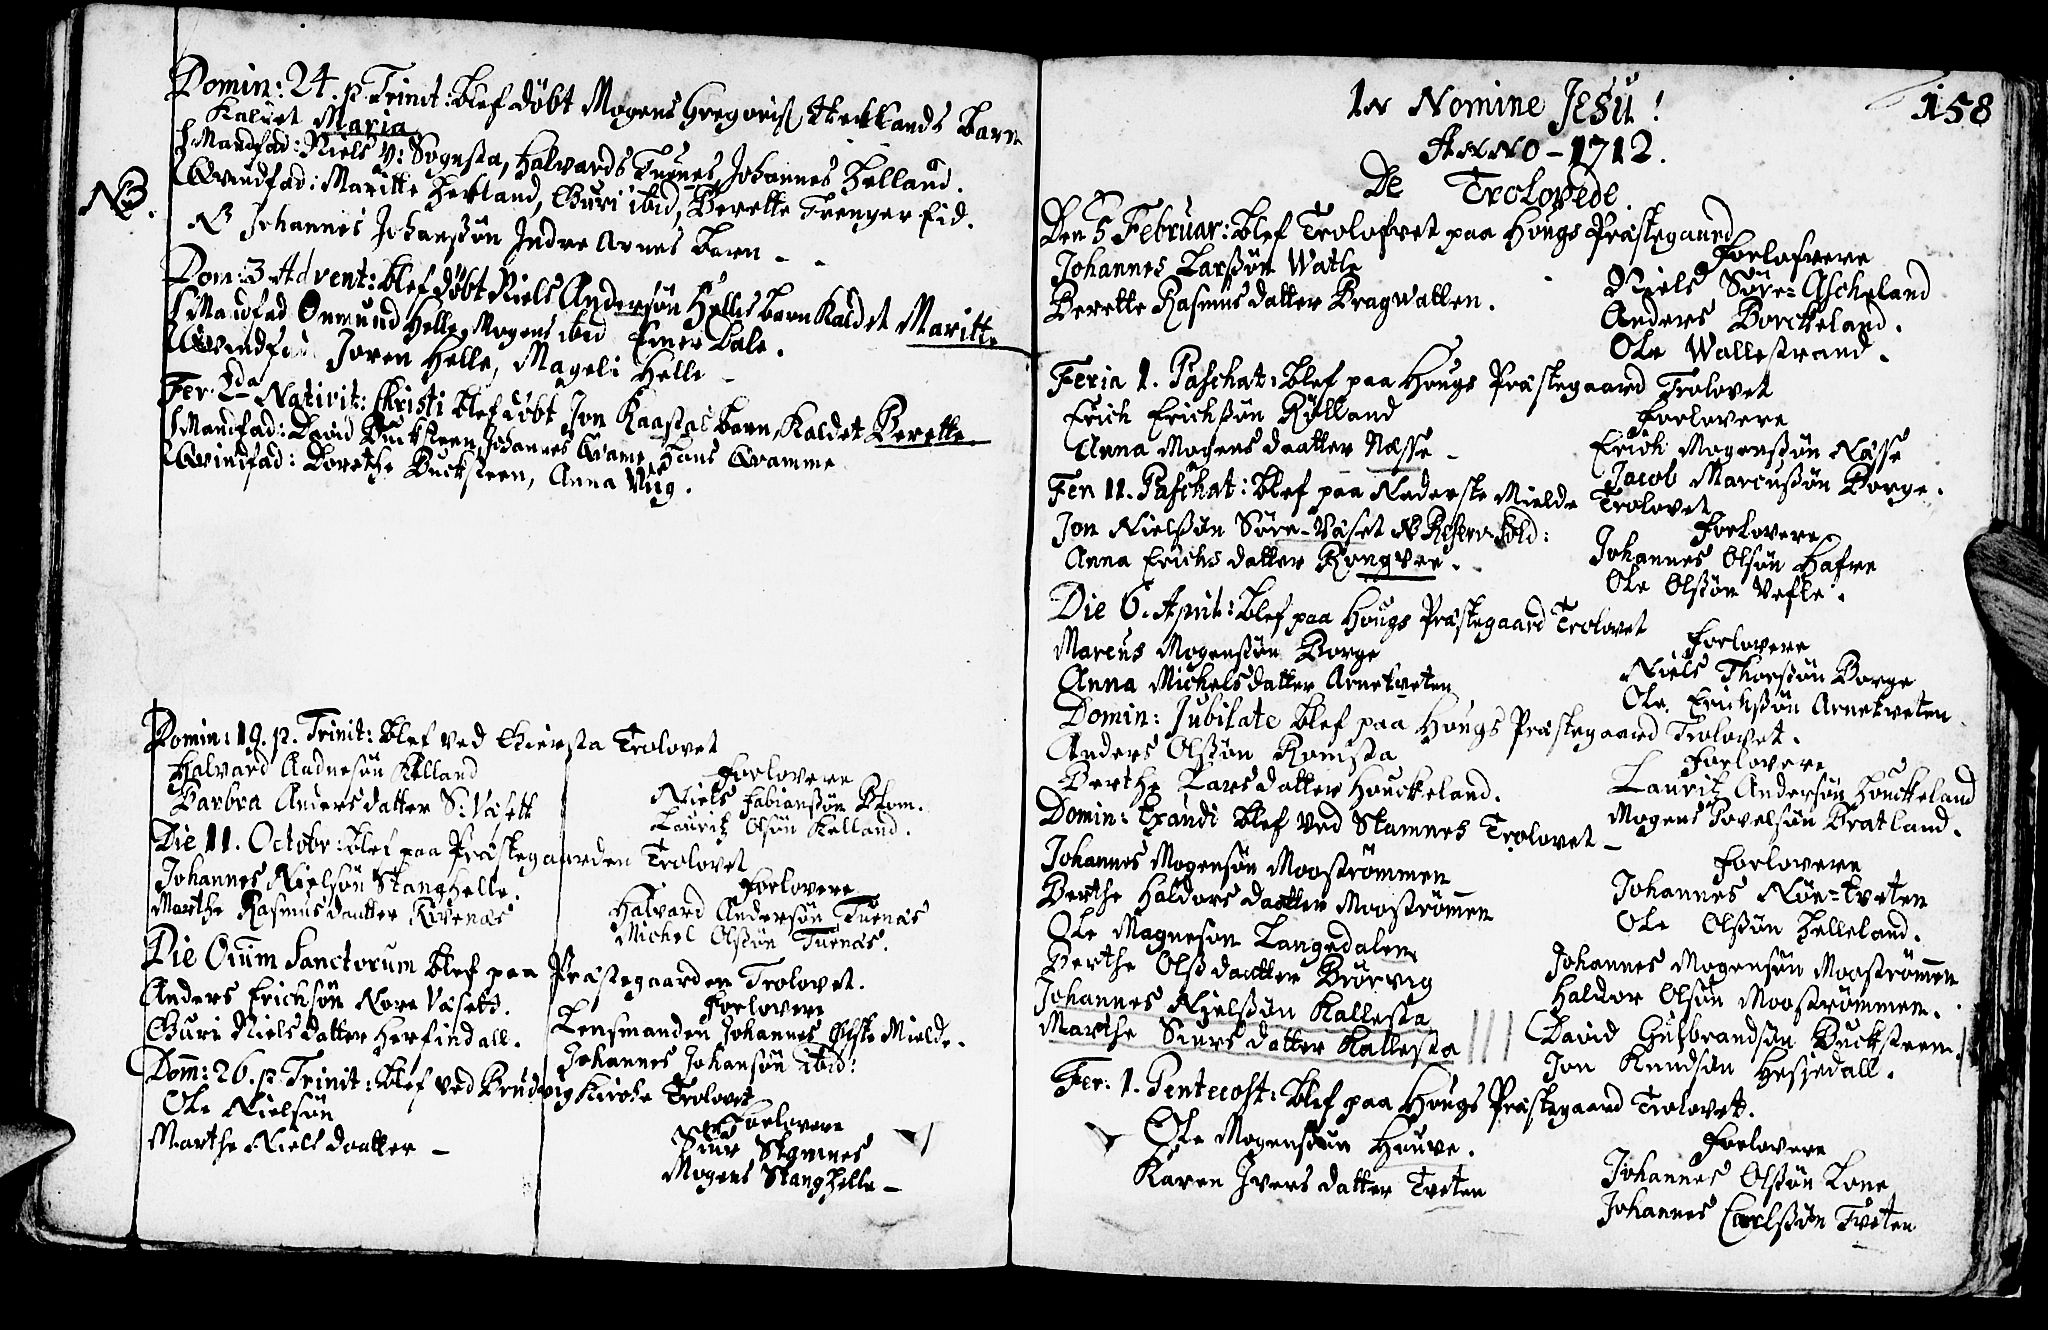 Domin: 24. p Trinit: blef döbt Mogens Gregoriß Herklands barn
Kalvet Maria
Mandfad: Niels V: Sognsta, Halvards Tuenes, Johannes Helland.
NB. Qvindfad: Maritte Herland, Guri ibid, Berette Trenger eid.
NB Johannes Johanßön Indre Arnes barn -
Dom: 3 Advent: blef döbt Niels Andersön Helles barn Kaldet Maritte
Mandfad Onmund Helle, Mogens ibid Einer Bale.
Qvindfad Joren Helle, Mageli Helle -
Fer. 2da Nativit: Christi blef döbt Jon Kaastad barn, Kaldet Berette
Mandfad: David Bucksteen, Johannes Qvame, Hans Qvamme
Qvindfad: Dorethe Bucksteen, Anna Vüg.
Domin: 19. p. Trinit: blef ved Giersta Trolovet
Halvard Andnesön Kelland
Barbra Andersdatter S: Väsett
Forlovere
Niels Fabianßön Blom.
Lauritz Olsön Kelland.
Die 11. Octobr: blef paa Præstegaarden Trolovet
Johannes Nielsön Stanghelle.
Marthe Rasmusdaatter Rivenæs
Forlovere
Halvard Andersön Tuenæs
Michel Olsßön Tuenæs.
Die Oium Sanctorum blef paa Præstegaarden Trolovet.
Anders Erichsön Nore Väsett.
Guri Nielsdatter Herfindall.
Forlovere
Lensmanden Johannes Ölste Mielde.
Johannes Johansön ibid:
Dom: 26. p Trinit: blef ved Brudvig Kirche Trolovet
Ole Nielsön
Marthe Nielsdaatter -
Forlovere
Siur Stamnes
Mogens Stanghelle -
158
In Nomine Jesu!
Anno - 1712.
De Trolovede.
Den 5 Februar: blef Trolofvet paa Hougs Præstegaard
Johannes Larßön Watle
Berette Rasmusdatter Bragwatten.
Forlofvere
Niels Söre-Ascheland
Anders Borckeland.
Ole Wallestrand.
Feria 1. Paschat: blef paa Hougs Præstegaard Trolovet
Erich Erichßön Rölland
Anna Mogensdaatter Næsse -
Forlovere
Erich Mogenßön Næsse
Jacob Marcusßön Borge.
Fer 11. Paschat: blef paa Nederste Mielde Trolovet
Jon Nielsßön Söre-Väset NB Reserv. Sold:
Anna Erichsdatter Rongvee.
Forlovere
Johannes Olsön Hafre
Ole Olßön Vefle.
Die 6. April: blef paa Hougs Præstegaard Trolovet
Marcus Mogenßön Borge
Anna Michelsdatter Arnetveten
Forlovere
Niels Thorßön Borge
Ole Erichßön Arnetveten
Domin: Jubilate blef paa Hougs Præstegaard Trolovet.
Anders Olßön Romsta
Berthe Larsdatter Houckeland.
Forlovere
Lauritz Andersön Houckeland
Mogens Povelsön Bratland.
Domin: Exaudi blef ved Stamnes Trolovet -
Johannes Mogensön Mooströmmen
Berthe Haldorsdaatter Mooströmen
Forlovere
Johannes Nön-tveten
Ole Olßön Helleland.
Ole Magneson Langedalen
Berthe Olßdaatter Brörvig
Johannes Mogensön Mooströmen
Haldor Olsön Mooströmmen.
Johannes Nielsßön Kallesta
Marthe Siursdatter Kallesta
David Gulbrandsön Bucksteen.
Jon Knudsön Hesjedall.
Fer: 1. Pentecost: blef paa Hougs Præstegaard Trolovet.
Ole Mogensöun Houve.
Karen Iversdatter Tveten
Forlovere
Johannes Olsßön Lone
Johannes Carlsßön Tveten